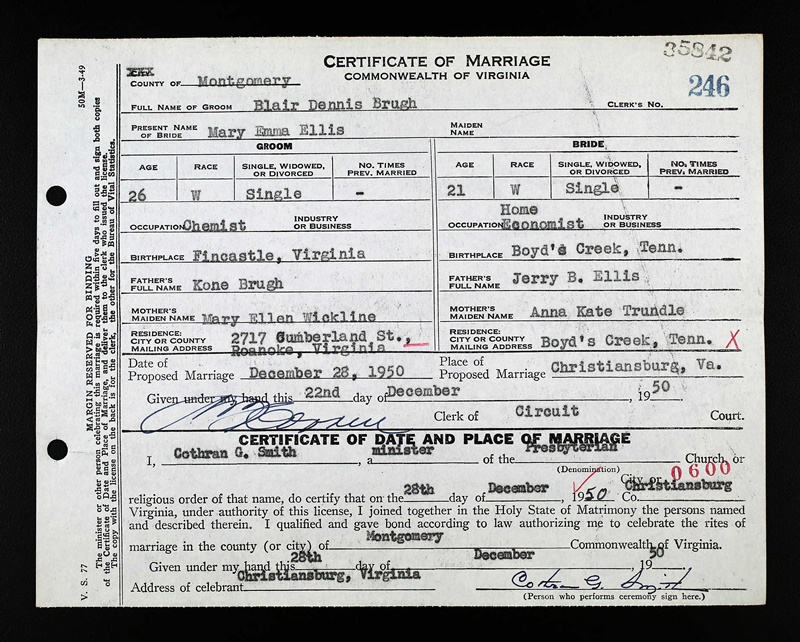 35842
CERTIFICATE OF MARRIAGE
COMMONWEALTH OF VIRGINIA
246
COUNTY OF Montgomery
FULL NAME OF GROOM Blair Dennis Brugh CLERK'S NO.
PRESENT NAME OF BRIDE Mary Emma Ellis MAIDEN NAME
GROOM BRIDE
AGE RACE SINGLE, WIDOWED, OR DIVORCED NO. TIMES PREV. MARRIED AGE RACE SINGLE, WIDOWED, OR DIVORCED NO. TIMES PREV. MARRIED
26 W Single - 21 W Single -
OCCUPATION Chemist INDUSTRY OR BUSINESS OCCUPATION Home Economist INDUSTRY OR BUSINESS
BIRTHPLACE Fincastle, Virginia BIRTHPLACE Boyd's Creek, Tenn.
FATHER'S FULL NAME Kone Brugh FATHER'S FULL NAME Jerry B. Ellis
MOTHER'S MAIDEN NAME Mary Ellen Wickline MOTHER'S MAIDEN NAME Anna Kate Trundle
RESIDENCE: CITY OR COUNTY MAILING ADDRESS 2717 Cumberland St., Roanoke, Virginia RESIDENCE: CITY OR COUNTY MAILING ADDRESS Boyd's Creek, Tenn. X
Date of Proposed Marriage December 28, 1950 Place of Proposed Marriage Christiansburg, Va.
Given under my hand this 22nd day of December, 1950
Clerk of Circuit Court.
CERTIFICATE OF DATE AND PLACE OF MARRIAGE
I, Cothran G. Smith, a minister of the Presbyterian Church, or
(Denomination) 0600
religious order of that name, do certify that on the 28th day of December, 1950 City or Co. Christiansburg
Virginia, under authority of this license, I joined together in the Holy State of Matrimony the persons named
and described therein. I qualified and gave bond according to law authorizing me to celebrate the rites of
marriage in the county (or city) of Montgomery Commonwealth of Virginia.
Given under my hand this 28th day of December 1950
Address of celebrant Christiansburg, Virginia Cothran G. Smith
(Person who performs ceremony sign here.)
V. S. 77 50M—3-49
MARGIN RESERVED FOR BINDING
The minister or other person celebrating this marriage is required within five days to fill out and sign both copies
of the Certificate of Date and Place of Marriage, and deliver them to the clerk who issued the license.
The copy with the license on the back is for the clerk, the other for the Bureau of Vital Statistics.